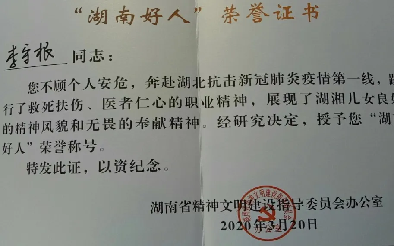 “湖南好人”荣誉证书
李守根 同志：
您不顾个人安危，奔赴湖北抗击新冠肺炎疫情第一线，践
行了救死扶伤、医者仁心的职业精神，展现了湖湘儿女良好
的精神风貌和无畏的奉献精神。经研究决定，授予您“湖
好人”荣誉称号。
特发此证，以资纪念。
湖南省精神文明建设指导委员会办公室
2020年3月20日